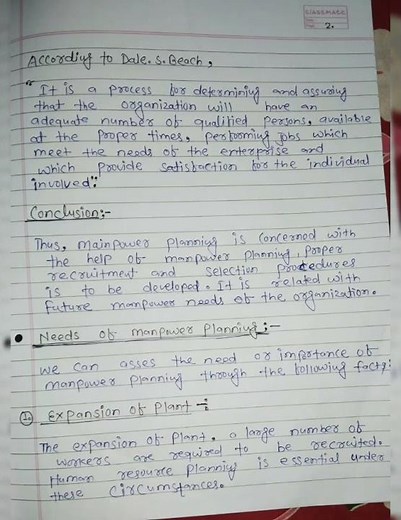 classmate
2.
According to Dale. S. Beach,
"It is a process for determining and assuring
that the organization will have an
adequate number of qualified persons, available
at the proper times, performing jobs which
meet the needs of the enterprise and
which provide satisfaction for the individual
involved."
Conclusion:-
Thus, mainpower planning is concerned with
the help of manpower planning, proper
recruitment and selection procedures
is to be developed. It is related with
future manpower needs of the organization.
Needs of manpower planning:-
we can asses the need or importance of
manpower planning through the following facts:
1. Expansion of Plant :-
The expansion of plant, a large number of
workers are required to be recruited.
Human resource planning is essential under
these circumstances.